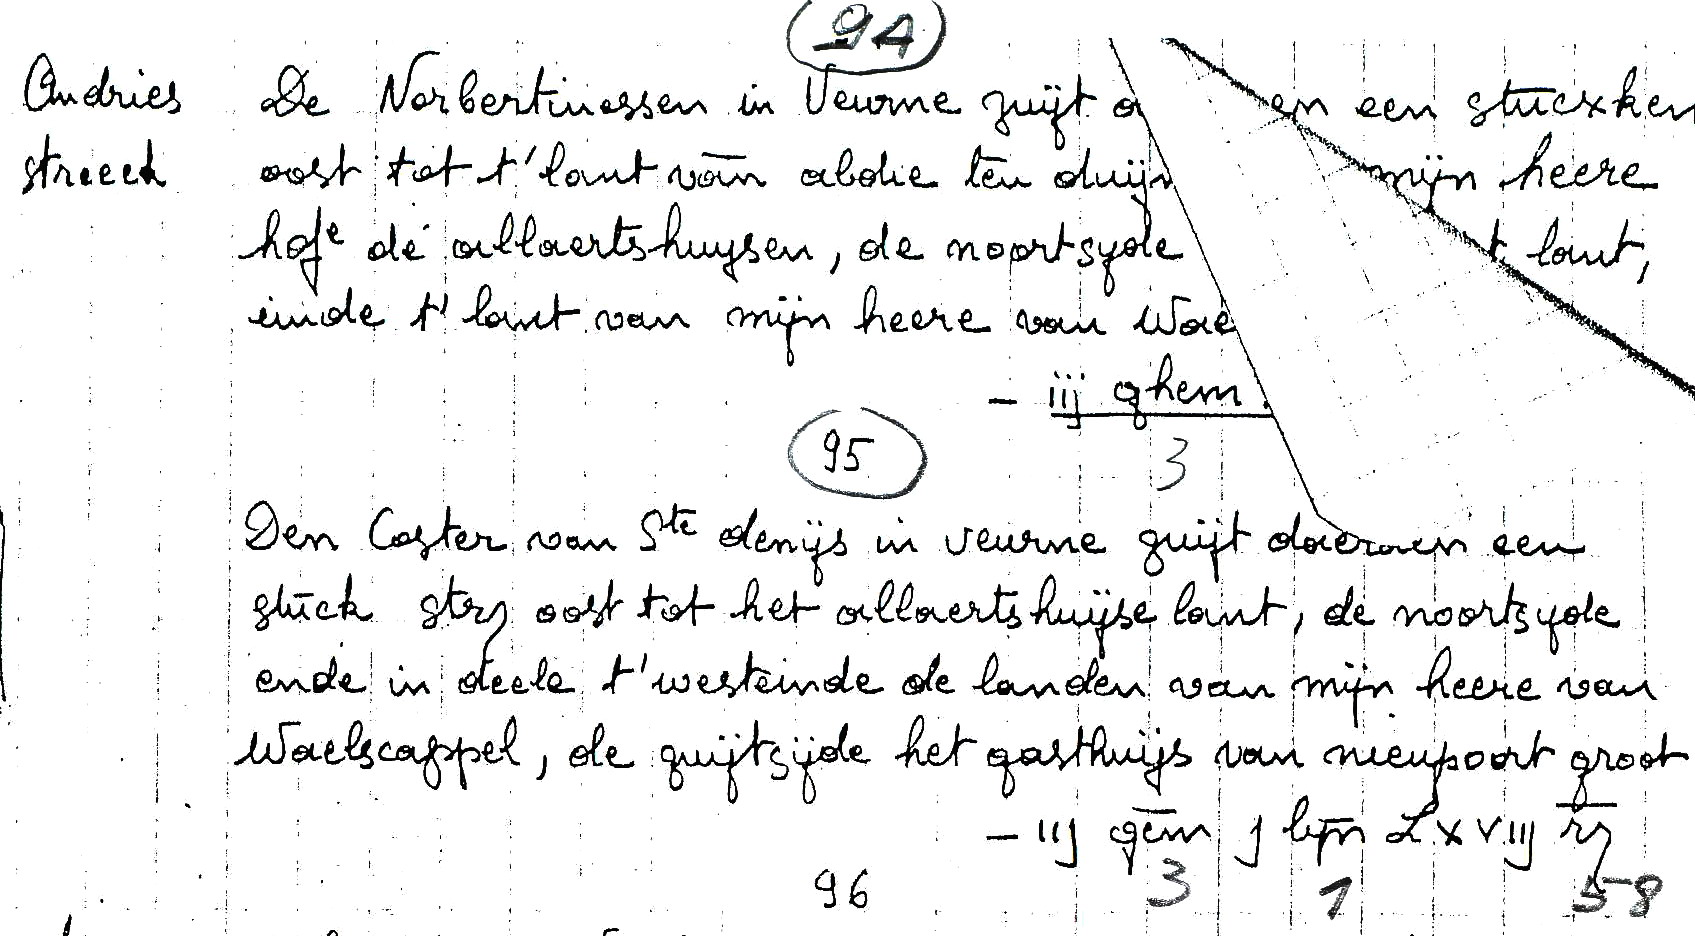 94
Andries De Norbertinessen in Veurne zuijt een stucxken
streeck oost tot t'lant van abdie ten duijn mijn heere
hofe de allaertshuysen, de noortsyde t lant,
einde t'lant van mijn heere van Wae
- iij ghem.
95
3
Den Coster van Ste denijs in veurne zuijt daeraen een
stuck strz oost tot het allaertshuijse lant, de noortsyde
ende in deele t'westeinde de landen van mijn heere van
Waelscappel, de zuijtzijde het gasthuijs van nieupoort groot
- iij gem j lyn Lxviij rz
96 3 1 58